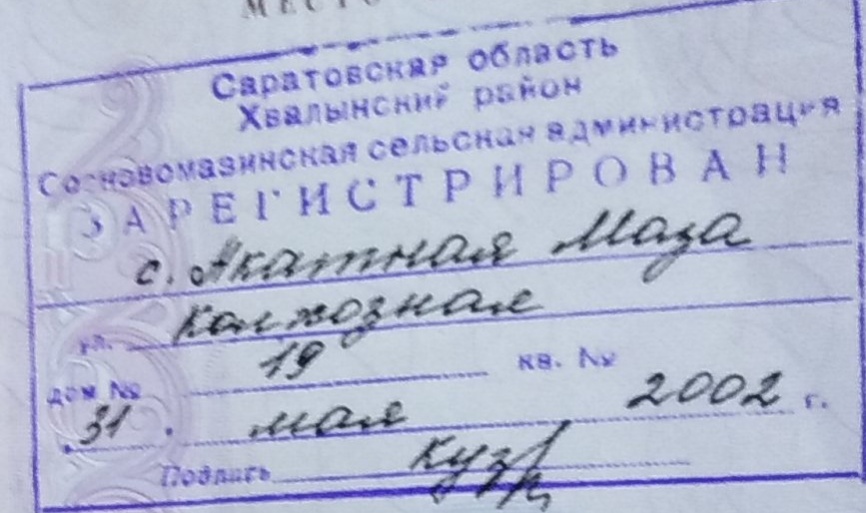 МЕСТО
Саратовская область
Хвалынский район
Сосновомазинская сельская администрация
ЗАРЕГИСТРИРОВАН
с. Акатная Маза
ул. Колхозная
дом № 19 кв. №
"31" мая 2002 г.
Подпись